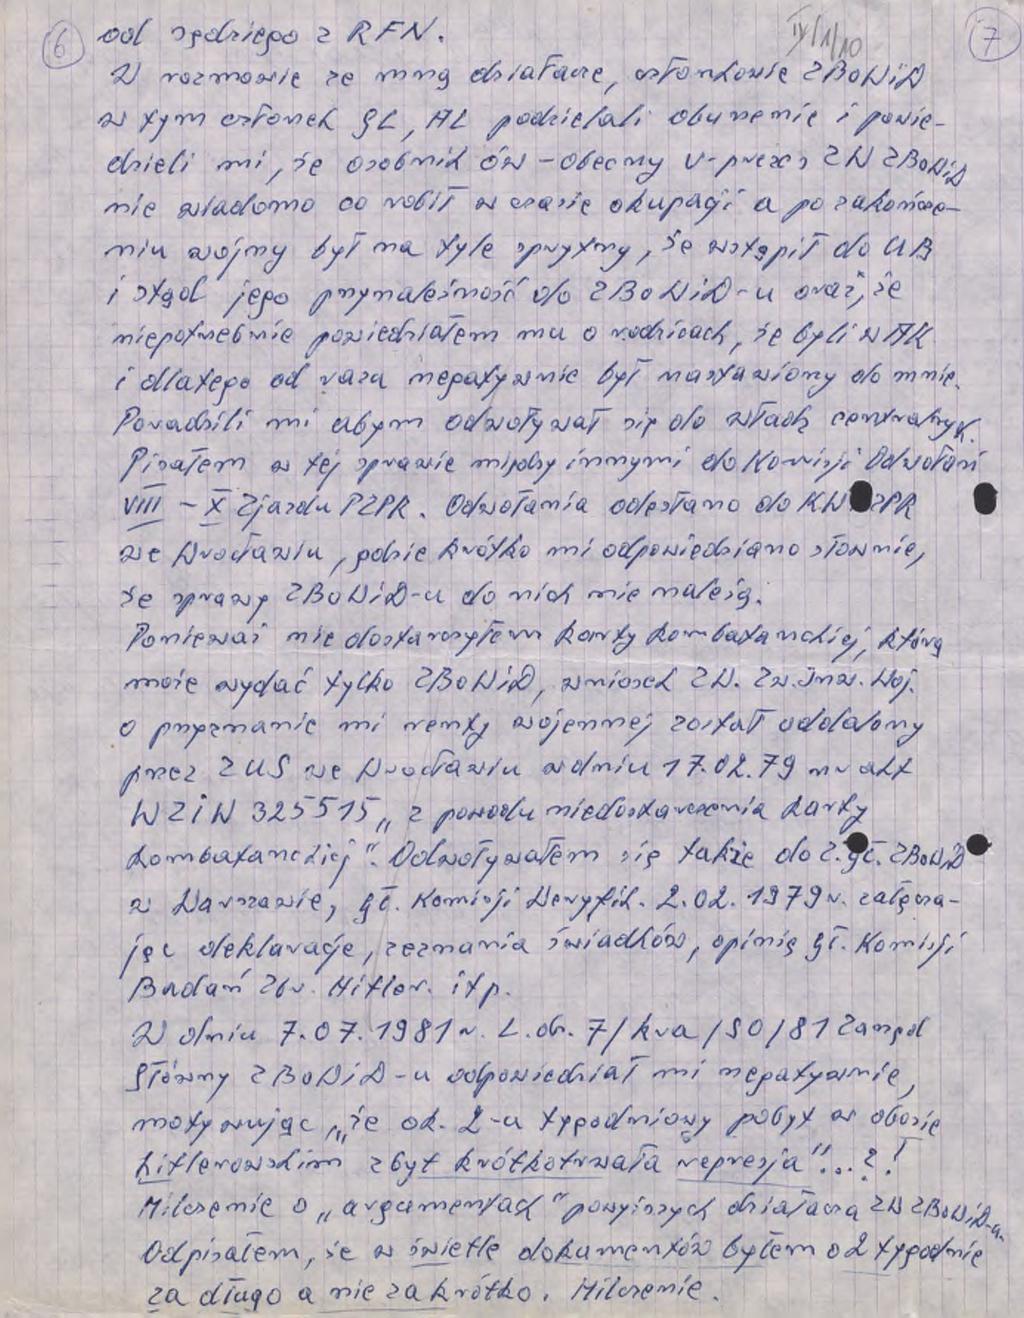 6 od sędziego z RFN. IV/1/10 7
W rozmowie ze mną działacze, członkowie ZBoWiD
w tym członek GL, AL podzielali oburzenie i powie-
dzieli mi, że osobnik ów – obecny v-prezes ZW ZBoWiD
nie wiadomo co robił w czasie okupacji a po zakończe-
niu wojny był na tyle sprytny, że wstąpił do UB
i stąd jego przynależność do ZBoWiD-u oraz, że
niepotrzebnie powiedziałem mu o rodzicach, że byli w AK
i dlatego od razu negatywnie był nastawiony do mnie.
Poradzili mi abym odwoływał się do władz centralnych.
Pisałem w tej sprawie między innymi do Komisji Odwołań
VIII – X Zjazdu PZPR. Odwołania odesłano do KW PZPR
we Wrocławiu, gdzie krótko mi odpowiedziano słownie,
że sprawy ZBoWiD-u do nich nie należą.
Ponieważ nie dostarczyłem karty kombatanckiej, którą
może wydać tylko ZBoWiD, wniosek ZW. Zw. Inw. Woj.
o przyznanie mi renty wojennej został oddalony
przez ZUS we Wrocławiu w dniu 17.02.79 nr akt
WZiW 325515 „z powodu niedostarczenia karty
kombatanckiej". Odwoływałem się także do Z. Gł. ZBoWiD
w Warszawie, Gł. Komisji Weryfik. 2.02.1979 r. załącza-
jąc deklarację, zeznania świadków, opinię Gł. Komisji
Badań Zbr. Hitler. itp.
W dniu 7.07.1981 r. L.dz. 7/kra/50/81 Zarząd
Główny ZBoWiD-u odpowiedział mi negatywnie,
motywując „że ok. 2-u tygodniowy pobyt w obozie
hitlerowskim zbyt krótkotrwała represja"...?!
Milczenie o „argumentach" powyższych działacza ZW ZBoWiD-u.
Odpisałem, że w świetle dokumentów byłem o 2 tygodnie
za długo a nie za krótko. Milczenie.